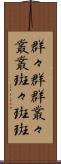 群々群群叢々
叢叢斑々斑斑